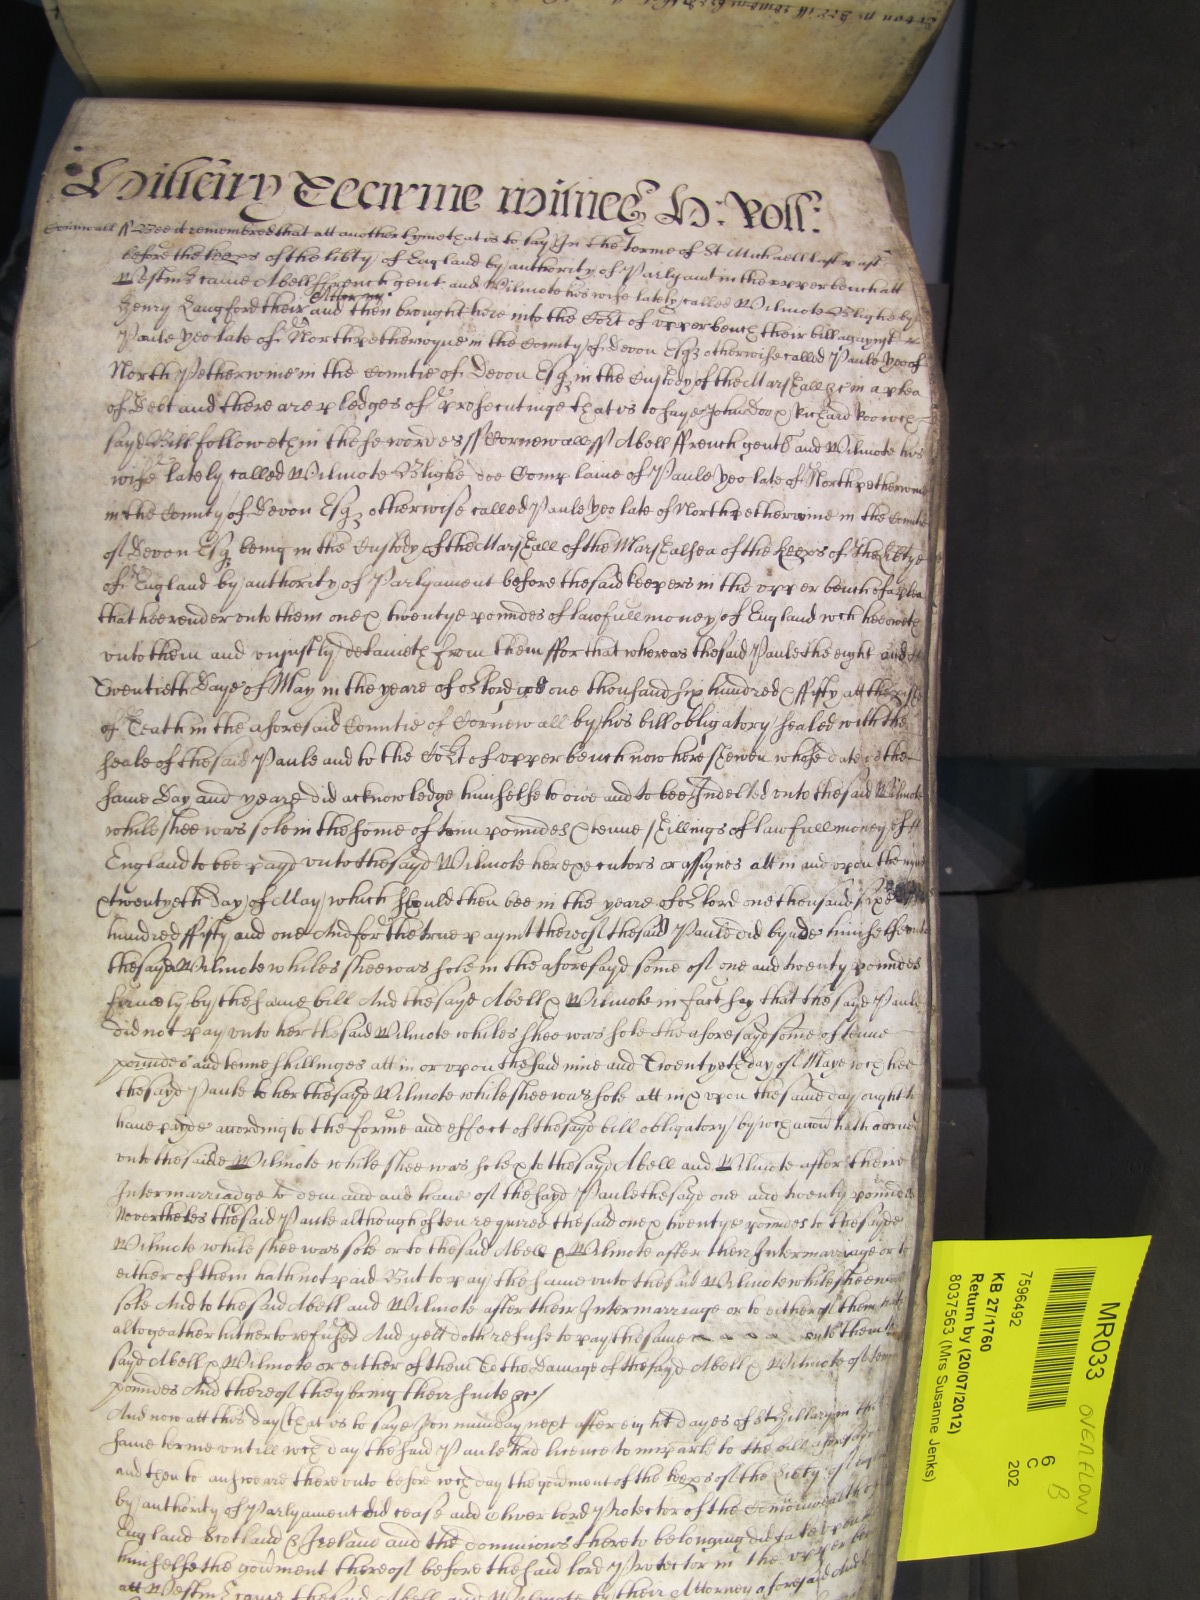 Hillary Tearme H: Roll:
Cornwall ss Bee it remembred that att another tyme that is to say In the terme of St Michaell last past
before the keeps of the libty of England by authority of Parlyament in the upper bench att
Westmr came Abell ffrench gent and Wilmote his wife lately called Wilmote Blighe by
Attorney
Henry Langford their and then brought here into the Cort of upper bench their bill against
Paule yeo late of Northpetherwyne in the County of Devon Esqr otherwise called Paule yeo of
North Petherwine in the Countie of Devon Esqr in the Custody of the Marshall &c in a plea
of Debt and there are pledges of prosecutinge that is to saye John Doo & Richard Roo wch
sayd Bill followeth in these wordes ss Cornewall ss Abell ffrench gent and Wilmote his
wife lately called Wilmote Blighe doe Complaine of Paule yeo late of Northpetherwine
in the County of Devon Esqr otherwise called Paule yeo late of Northpetherwine in the Countie
of Devon Esqr being in the Custody of the Marshall of the Marshalsea of the keeps of the libtye
of England by authority of Parlyament before the said keepers in the upper bench of a plea
that hee render unto them one & twentye poundes of lawfull money of England wch hee oweth
unto them and unjustly detaineth from them ffor that whereas the said Paule the eight and
Twentieth Daye of May in the yeare of or Lord god one thousand six hundred & ffifty att the
of Teath in the aforesaid Countie of Cornewall by his bill obligatory sealed with the
seale of the said Paule and to the Cort of upper bench now here shewen whose date is the
same Day and yeare did acknowledge himselfe to owe and to bee Indebted unto the said Wilmote
while shee was sole in the some of tenn poundes & tenne shillings of lawfull money of
England to bee payd unto the sayd Wilmote her executors or assignes att in and upon the nyne
& twentyeth Day of May which should then bee in the yeare of or Lord one thousand sixe
hundred ffifty and one And for the true paymt thereof the said Paule did bynde himselfe unto
the sayd Wilmote whiles shee was sole in the aforesayd some of one and twenty poundes
firmely by the same bill And the saye Abell & Wilmote in fact say that the saye Paule
did not pay unto her the said Wilmote whiles shee was sole the aforesayd some of tenne
poundes and tenne shillinges att in or upon the said nine and Twentyeth day of Maye wch hee
the sayd Paule to her the sayd Wilmote while shee was sole att in & upon the same day ought to
have payde according to the forme and effect of the sayd bill obligatory by wch accon hath accrued
unto the saide Wilmote while shee was sole & to the sayd Abell and Wilmote after theire
Intermarriadge to demand and have of the sayd Paule the sayd one and twenty poundes
Nevertheles the said Paule although often required the said one & twentye poundes to the sayde
Wilmote while shee was sole or to the said Abell & Wilmote after their Intermarriage or to
either of them hath not paid But to pay the same unto the said Wilmote while shee was
sole And to the said Abell and Wilmote after their Intermarriage or to either of them hath
altogeather hitherto refused And yett doth refuse to pay the same unto them the
sayd Abell & Wilmote or either of them To the Damage of the sayd Abell & Wilmote of tenn
poundes And thereof they bring their suite &c
And now att this day that is to saye on munday next after eight dayes of St Hillary in the
same terme untill wch day the said Paule had licence to imparle to the bill aforesayd
and then to answeare there unto before wch day the govment of the keeps of the Libty of England
by authority of Parlyament did cease and Oliver lord Protector of the Comonwealth of
England Scotland & Ireland and the Dominions thereto belonging did take upon
himselfe the govment thereof before the said lord Protector in the upper bench
att Westmr came the said Abell and Wilmote by their Attorney aforesaid And
MR033 OVERFLOW
7596492 6 B
C
KB 27/1760 202
Return by (20/07/2012)
8037563 (Mrs Susanne Jenks)